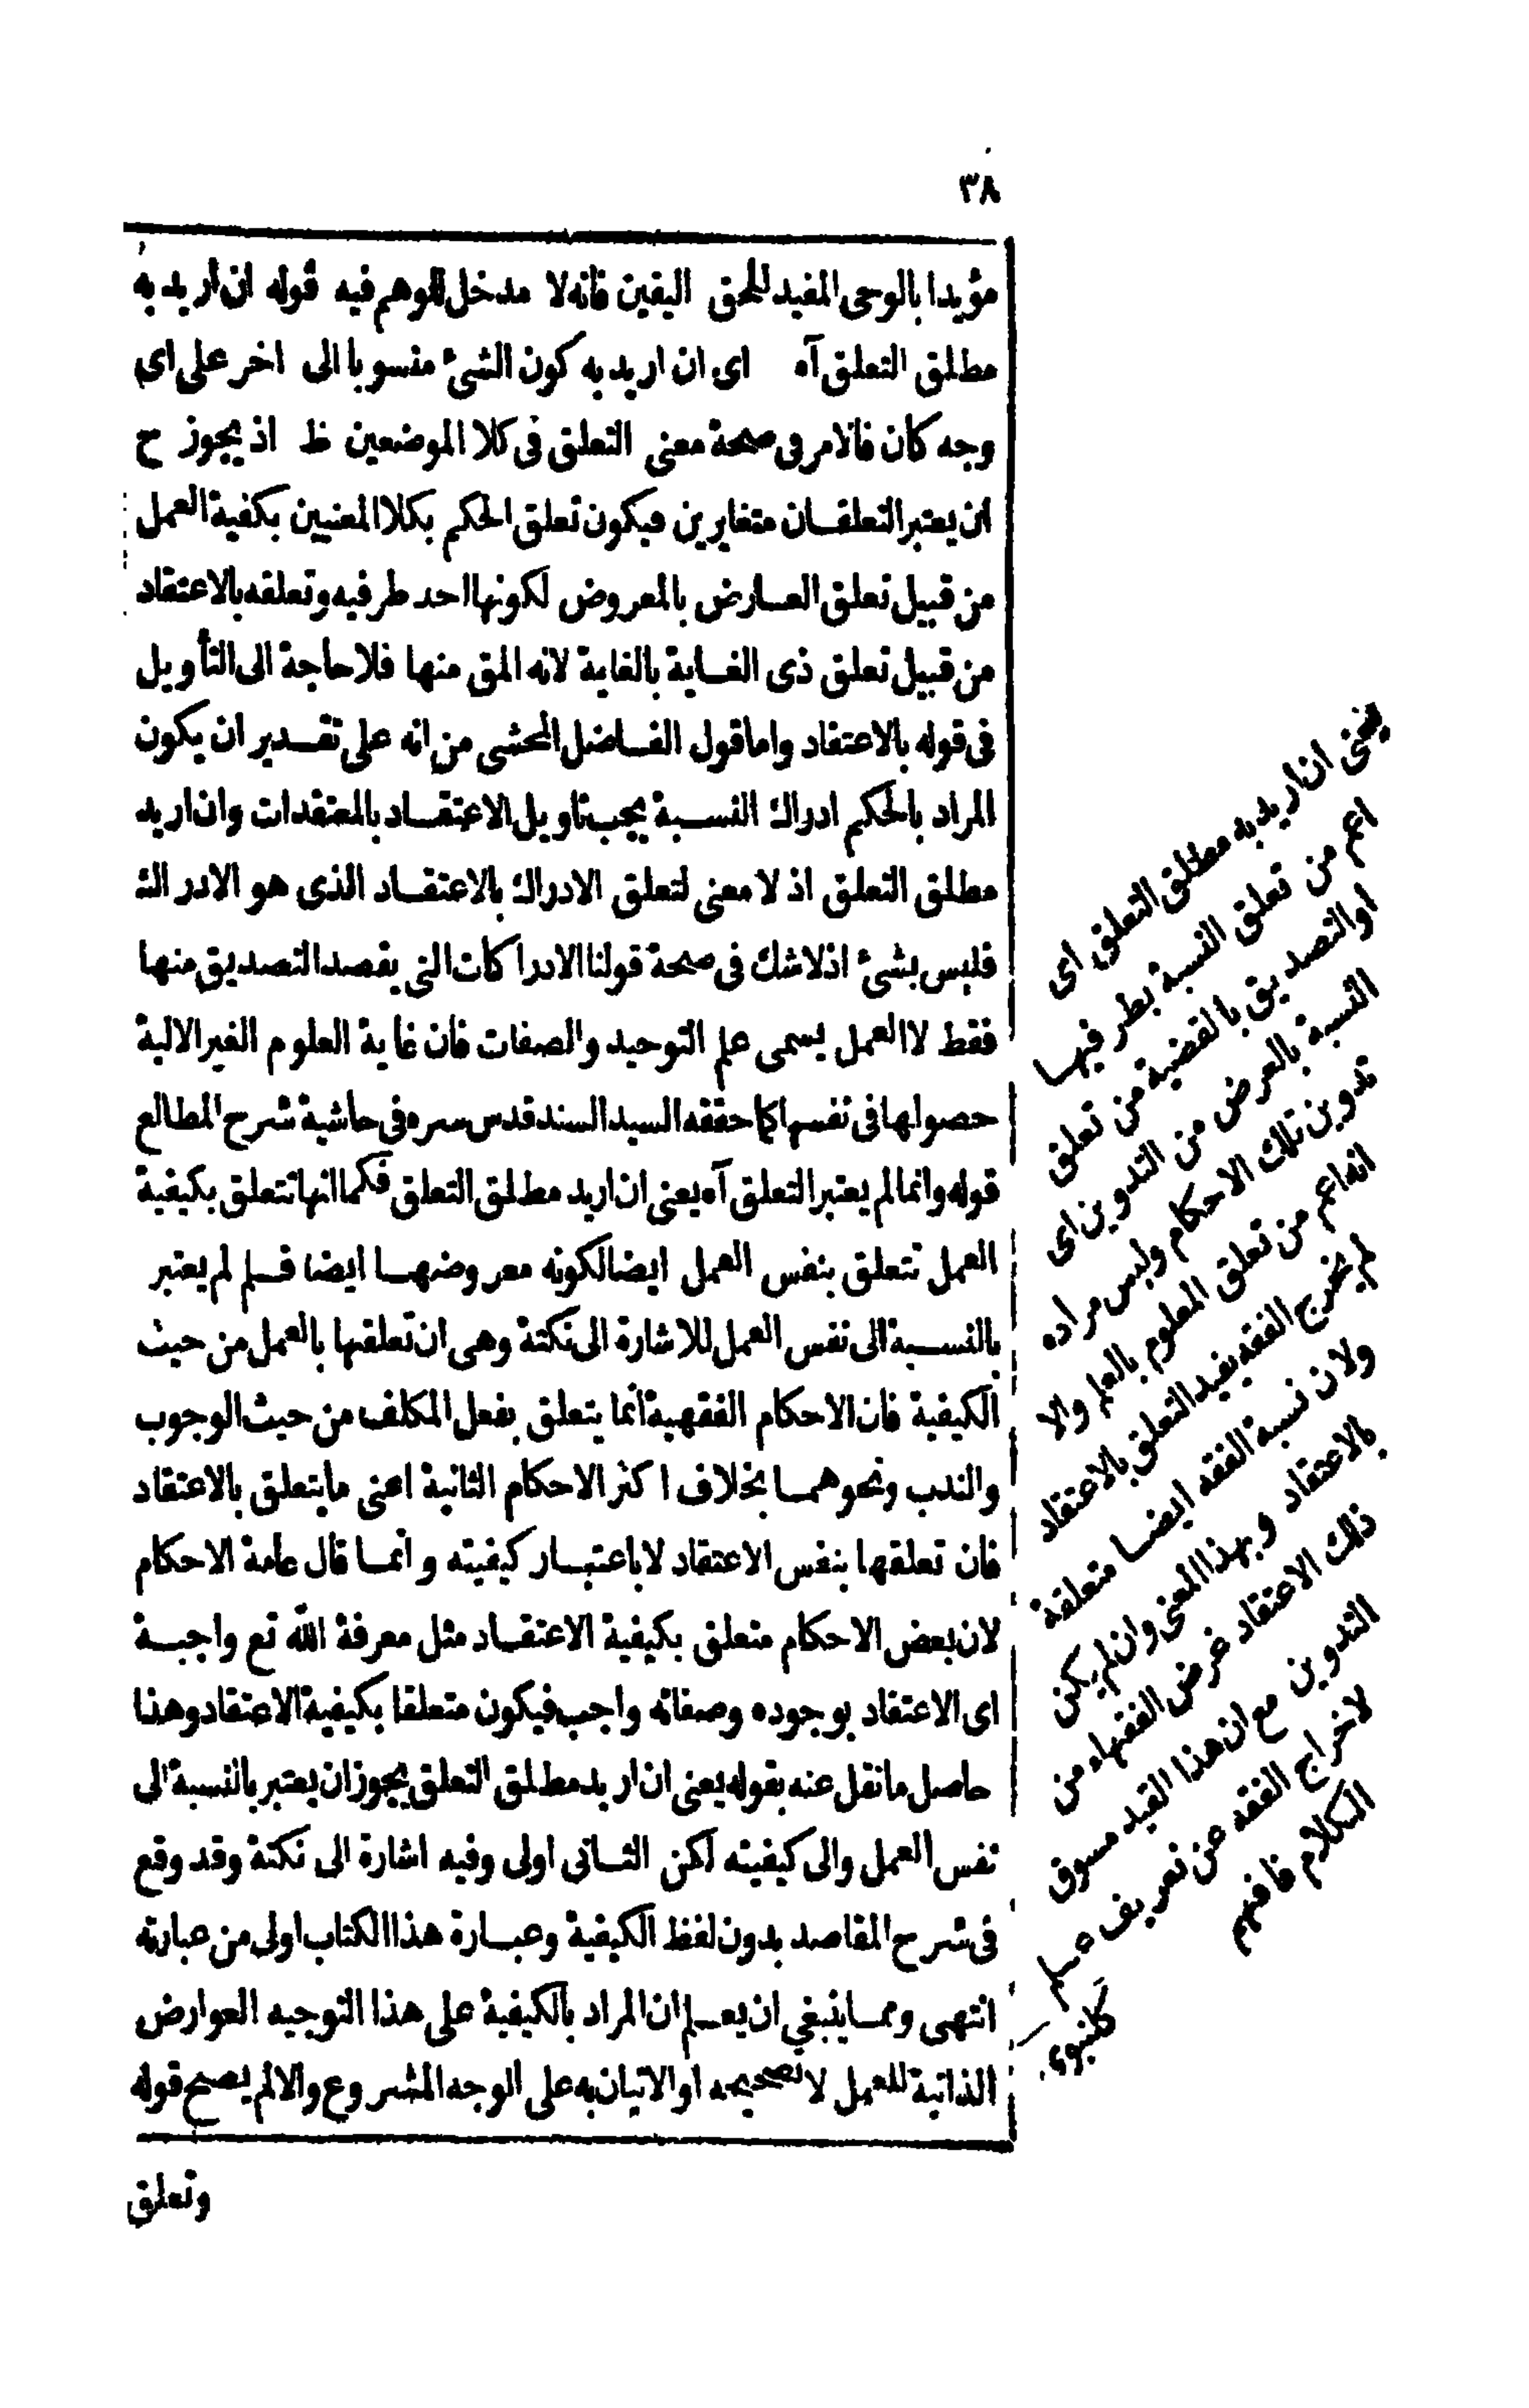 ٣٨
مؤيدا بالوحى المفيد للحق اليقين فانه لا مدخل للوهم فيه قوله ان اريد به
مطلق التعلق آه اى ان اريد به كون الشئ منسوبا الى اخر على اى
وجه كان فالامر فى صحة معنى التعلق فى كلا الموضعين ظ اذ يجوز ح
ان يعتبر التعلقان متغايرين فيكون تعلق الحكم بكلا المعنيين بكفية العمل
من قبيل تعلق العارض بالمعروض لكونها احد طرفيه وتعلقه بالاعتقاد
من قبيل تعلق ذى الغاية بالغاية لانه المق منها فلا حاجة الى التأويل
فى قوله بالاعتقاد واما قول الفاضل المحشى من انه على تقدير ان يكون
المراد بالحكم ادراك النسبة يجب تاويل الاعتقاد بالمعتقدات وان اريد
مطلق التعلق اذ لا معنى لتعلق الادراك بالاعتقاد الذى هو الادراك
فليس بشئ اذ لا شك فى صحة قولنا الادراكات التى يقصد التصديق منها
فقط لا العمل يسمى علم التوحيد والصفات فان غاية العلوم الغير الالية
حصولها فى نفسها كما حققه السيد السند قدس سره فى حاشية شرح المطالع
قوله وانما لم يعتبر التعلق آه يعنى ان اريد مطلق التعلق فكما انها تتعلق بكيفية
العمل تتعلق بنفس العمل ايضا لكونه معروضها ايضا فلم لم يعتبر
بالنسبة الى نفس العمل للاشارة الى نكتة وهى ان تعلقها بالعمل من حيث
الكيفية فان الاحكام الفقهية انما يتعلق بفعل المكلف من حيث الوجوب
والندب ونحوهما بخلاف اكثر الاحكام الثانية اعنى ما يتعلق بالاعتقاد
فان تعلقها بنفس الاعتقاد لا باعتبار كيفيته وانما قال عامة الاحكام
لان بعض الاحكام متعلق بكيفية الاعتقاد مثل معرفة الله تع واجبة
اى الاعتقاد بوجوده وصفاته واجب فيكون متعلقا بكيفية الاعتقاد وهذا
حاصل ما نقل عنه بقوله يعنى ان اريد مطلق التعلق يجوز ان يعتبر بالنسبة الى
نفس العمل والى كيفيته لكن الثانى اولى وفيه اشارة الى نكتة وقد وقع
فى شرح المقاصد بدون لفظ الكيفية وعبارة هذا الكتاب اولى من عبارته
انتهى ومما ينبغى ان يعلم ان المراد بالكيفية على هذا التوجيه العوارض
الذاتية للعمل لا تصحيحه او الاتيان به على الوجه المشروع والا لم يصح قوله
وتعلق
يعنى ان اريد به مطلق التعلق اى
اعم من تعلق النسبة بطرفيها
او التصديق بالقضية من تعلق
النسبة بالغرض من التدوين اى
تدوين تلك الاحكام وليس مراده
انه اعم من تعلق المعلوم بالعلم والا
لم يخرج الفقه بقيد التعلق بالاعتقاد
ولان نسبة الفقه ايضا متعلقة
بالاعتقاد وبهذا المعنى وان لم يكن
ذلك الاعتقاد غرض الفقهاء من
التدوين مع ان هذا القيد مسوق
لاخراج الفقه عن تعريف علم
الكلام فافهم
كلنبوى